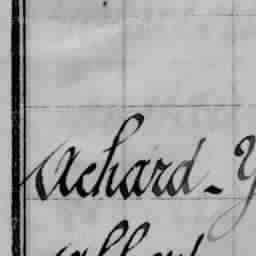 Achard - Y